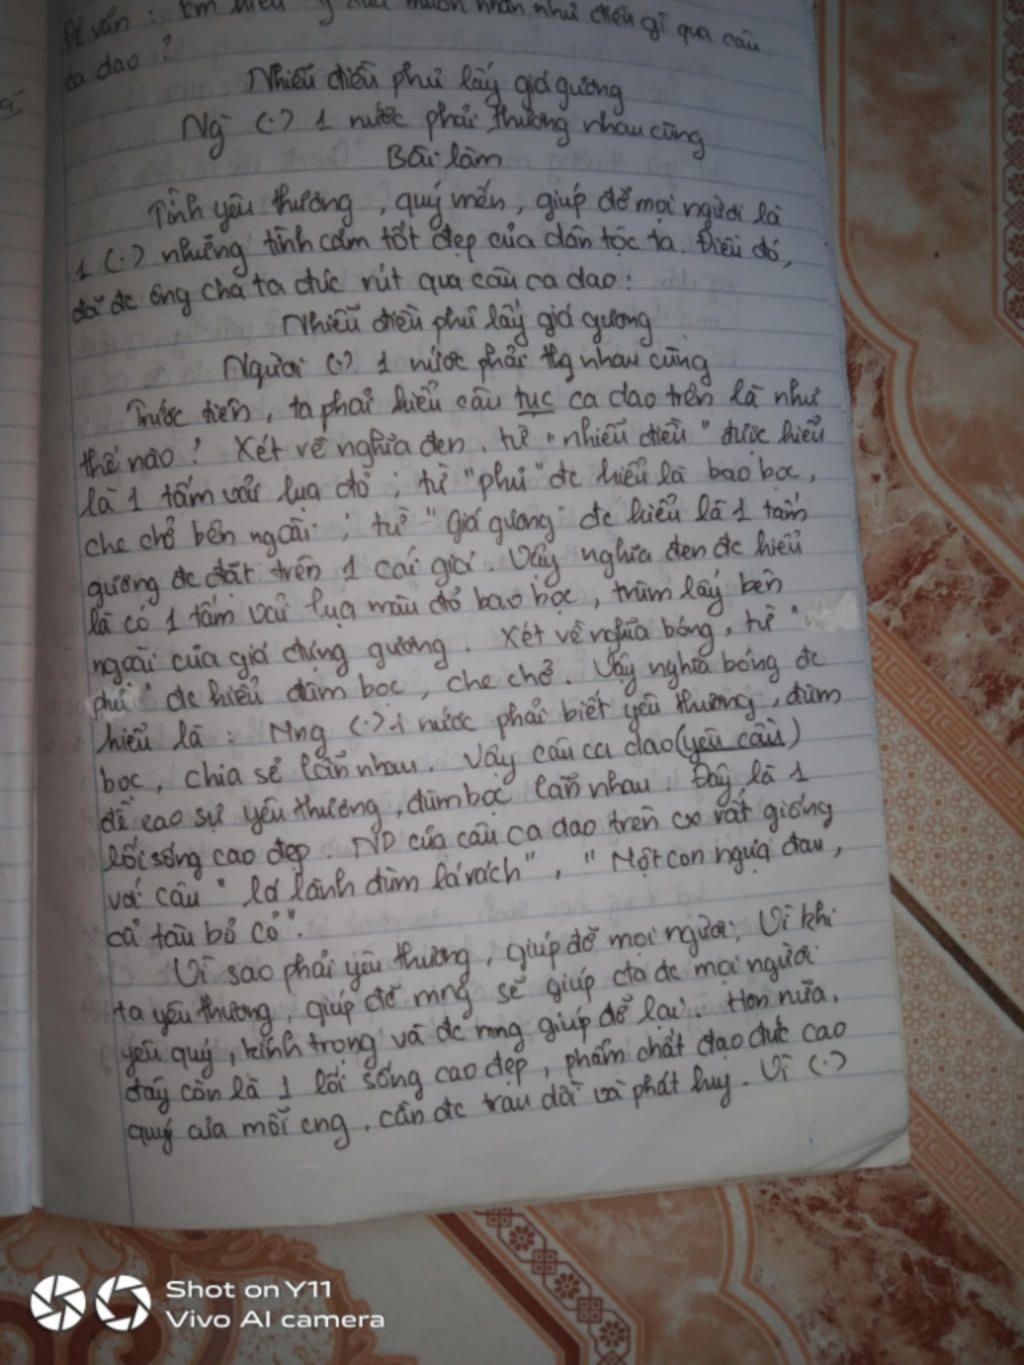 Đề văn : Em hiểu người xưa muốn nhắn nhủ điều gì qua câu
ca dao ?
Nhiễu điều phủ lấy giá gương
Ng (.) 1 nước phải thương nhau cùng
Bài làm
Tình yêu thương , quý mến , giúp đỡ mọi người là
1 (.) những tình cảm tốt đẹp của dân tộc ta. Điều đó,
đã đc ông cha ta đúc rút qua câu ca dao :
Nhiễu điều phủ lấy giá gương
Người (.) 1 nước phải thg nhau cùng
Trước tiên , ta phải hiểu câu tục ca dao trên là như
thế nào ? Xét về nghĩa đen , từ " nhiễu điều " được hiểu
là 1 tấm vải lụa đỏ ; từ "phủ" đc hiểu là bao bọc ,
che chở bên ngoài ; từ " Giá gương " đc hiểu là 1 tấm
gương đc đặt trên 1 cái giá . Vậy nghĩa đen đc hiểu
là có 1 tấm vải lụa màu đỏ bao bọc , trùm lấy bên
ngoài của giá đựng gương . Xét về nghĩa bóng , từ "
phủ " đc hiểu đùm bọc , che chở . Vậy nghĩa bóng đc
hiểu là : Mng (.) 1 nước phải biết yêu thương , đùm
bọc , chia sẻ lẫn nhau . Vậy câu ca dao (yêu cầu)
đề cao sự yêu thương , đùm bọc lẫn nhau . Đây là 1
lối sống cao đẹp . ND của câu ca dao trên rất giống
với câu " lá lành đùm lá rách " , " Một con ngựa đau ,
cả tàu bỏ cỏ " .
Vì sao phải yêu thương , giúp đỡ mọi người . Vì khi
ta yêu thương , giúp đỡ mng sẽ giúp cta đc mọi người
yêu quý , kính trọng và đc mng giúp đỡ lại . Hơn nữa ,
đây còn là 1 lối sống cao đẹp , phẩm chất đạo đức cao
quý của mỗi cng , cần đc trau dồi và phát huy . Vì (.)
Shot on Y11
Vivo AI camera